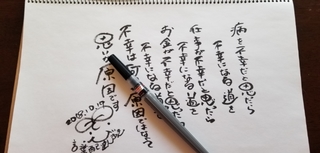 病を不幸だと思だら
不幸になる道を
仕事が不幸だと思たら
不幸になる道を
お金が不幸だと思たら
不幸になる道を
不幸は
原因でなくて
思いが原因です
2018.10.17